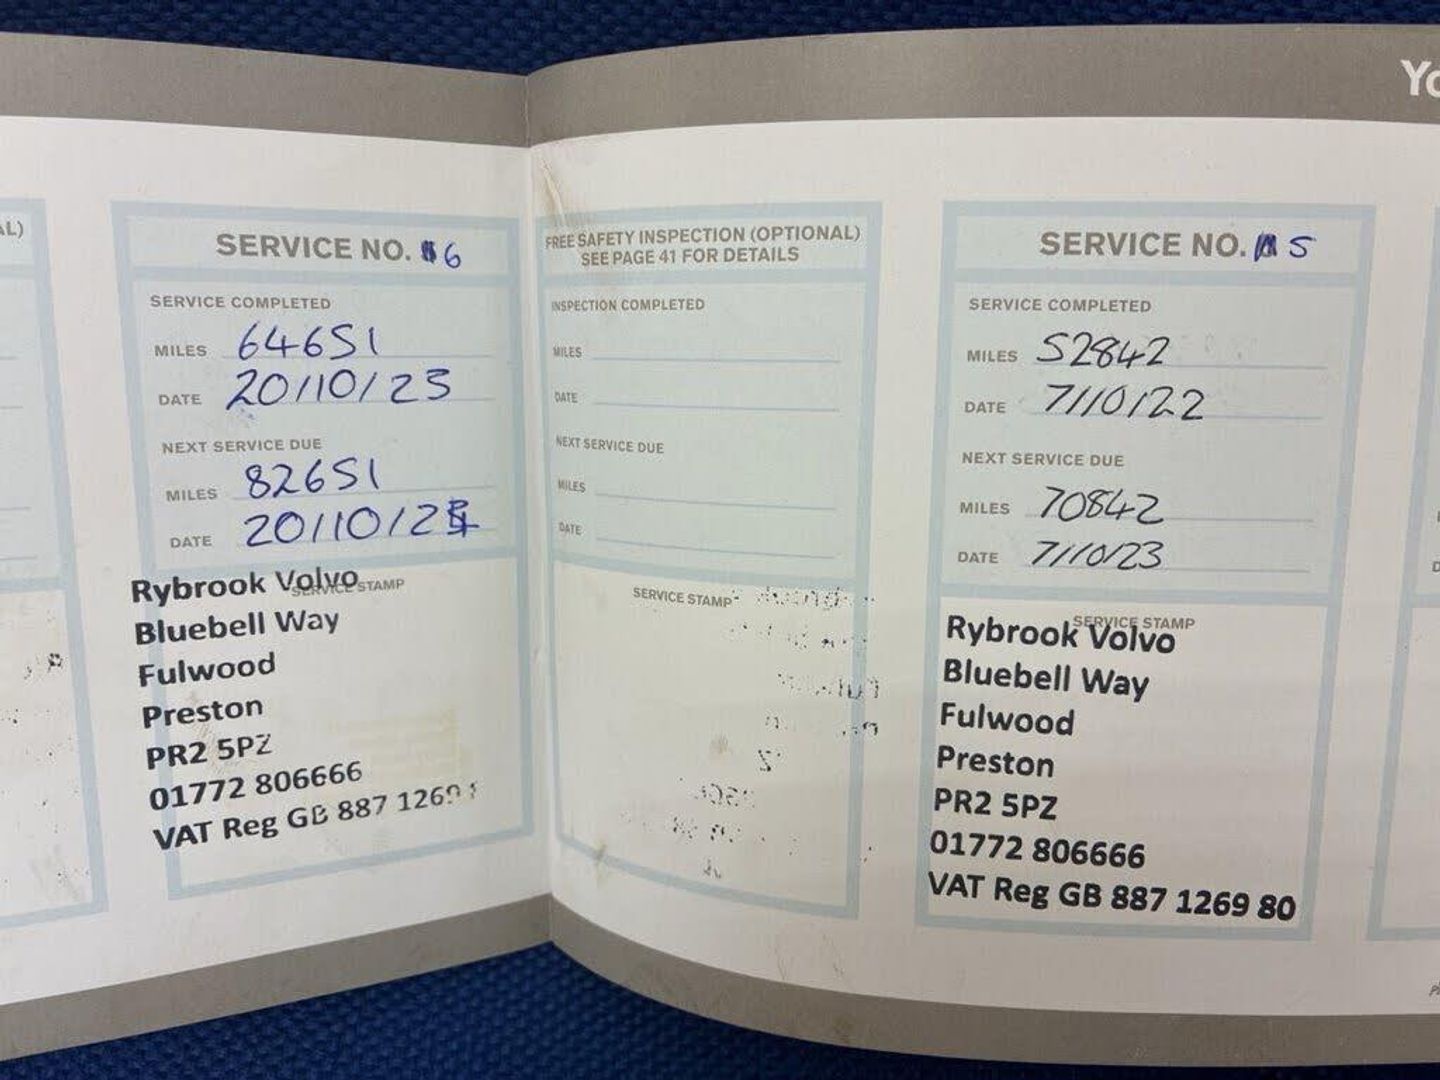 Yo
AL)
SERVICE NO. 6
SERVICE COMPLETED
MILES 64651
DATE 20/10/23
NEXT SERVICE DUE
MILES 82651
DATE 20/10/24
SERVICE STAMP
Rybrook Volvo
Bluebell Way
Fulwood
Preston
PR2 5PZ
01772 806666
VAT Reg GB 887 1269
FREE SAFETY INSPECTION (OPTIONAL)
SEE PAGE 41 FOR DETAILS
INSPECTION COMPLETED
MILES
DATE
NEXT SERVICE DUE
MILES
DATE
SERVICE STAMP
SERVICE NO. 5
SERVICE COMPLETED
MILES 52842
DATE 7/10/22
NEXT SERVICE DUE
MILES 70842
DATE 7/10/23
SERVICE STAMP
Rybrook Volvo
Bluebell Way
Fulwood
Preston
PR2 5PZ
01772 806666
VAT Reg GB 887 1269 80